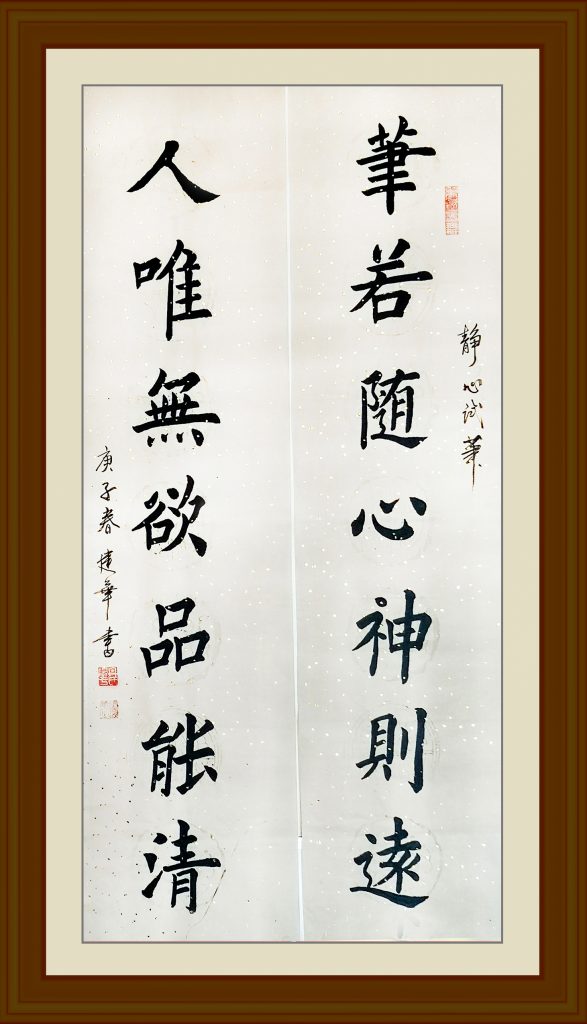 静心试笔
筆若随心神則遠
人唯無欲品能清
庚子春建華書